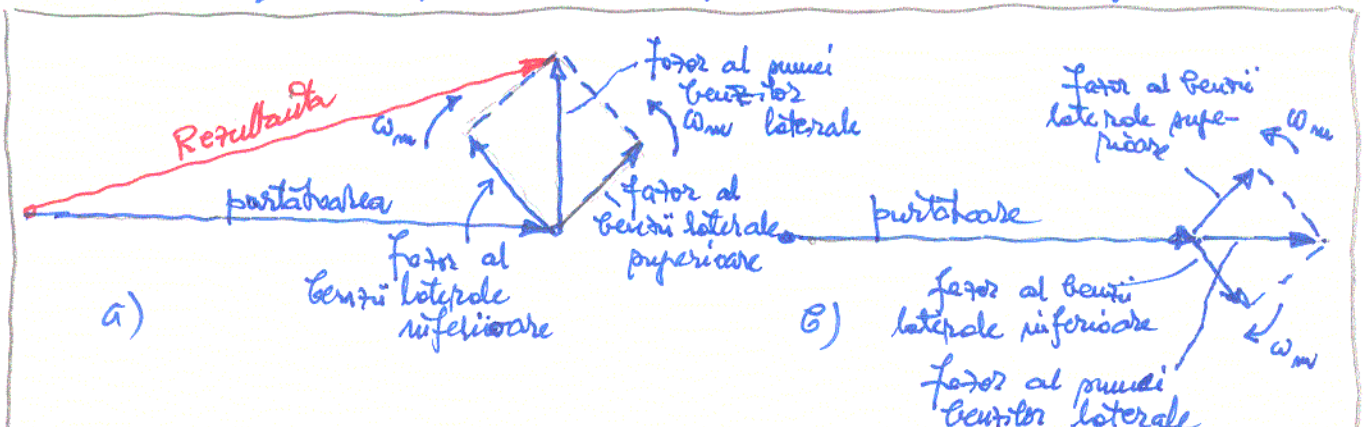 Rezultanta
purtătoarea
a)
ωm
fazor al sumei
benzilor
ωm laterale
fazor al
benzii laterale
superioare
fazor al
benzii laterale
inferioare
fazor al benzii
laterale supe-
rioare
ωm
purtătoare
b)
fazor al benzii
laterale inferioare
ωm
fazor al sumei
benzilor laterale